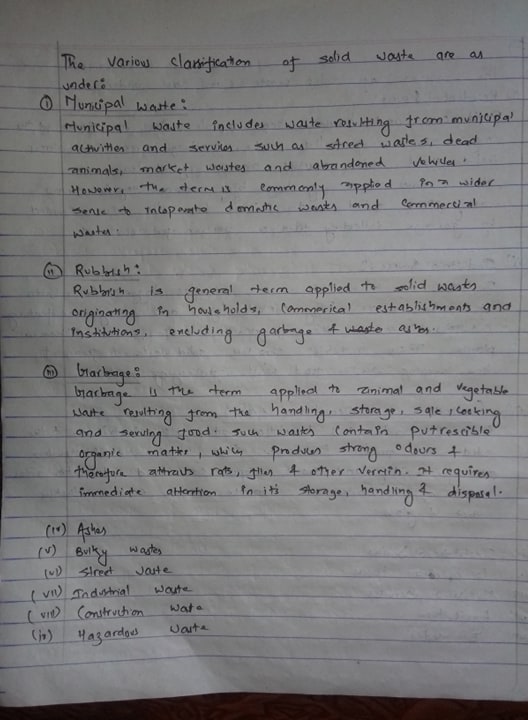 The various classification of solid waste are as
under:
(i) Municipal waste:
Municipal waste includes waste resulting from municipal
activities and services such as street wastes, dead
animals, market wastes and abandoned vehicles.
However, the term is commonly applied in a wider
sense to incoperate domestic wastes and commercial
wastes.
(ii) Rubbish:
Rubbish is general term applied to solid wastes
originating in households, commerical establishments and
institutions, excluding garbage & waste ashes.
(iii) Garbage:
Garbage is the term applied to animal and vegetable
waste resulting from the handling, storage, sale, cooking
and serving food. Such wastes contain putrescible
organic matter, which produces strong odours &
therefore attracts rats, flies & other vermin. It requires
immediate attention in its storage, handling & disposal.
(iv) Ashes
(v) Bulky wastes
(vi) Street waste
(vii) Industrial waste
(viii) Construction waste
(ix) Hazardous waste